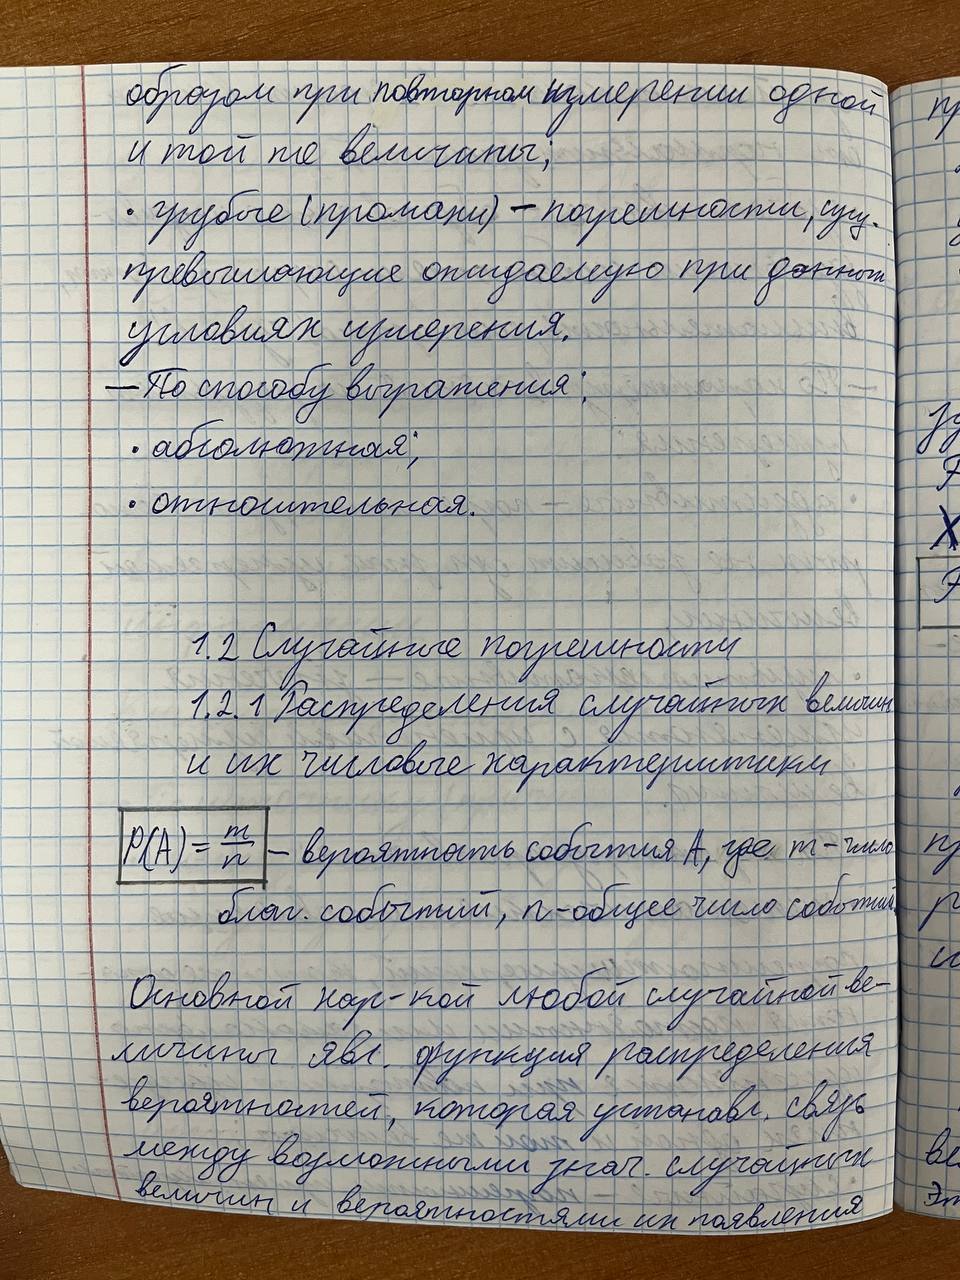 образом при повторном измерении одной
и той же величины;
· грубые (промахи) – погрешности, сущ.
превышающие ожидаемую при данных
условиях измерения.
— По способу выражения:
· абсолютная;
· относительная.
1.2 Случайные погрешности
1.2.1 Распределения случайных величин
и их числовые характеристики
P(A) = m/n – вероятность события A, где m – число
благ. событий, n – общее число событий.
Основной хар-кой любой случайной ве-
личины явл. функция распределения
вероятностей, которая устанавл. связь
между возможными знач. случайных
величин и вероятностями их появления